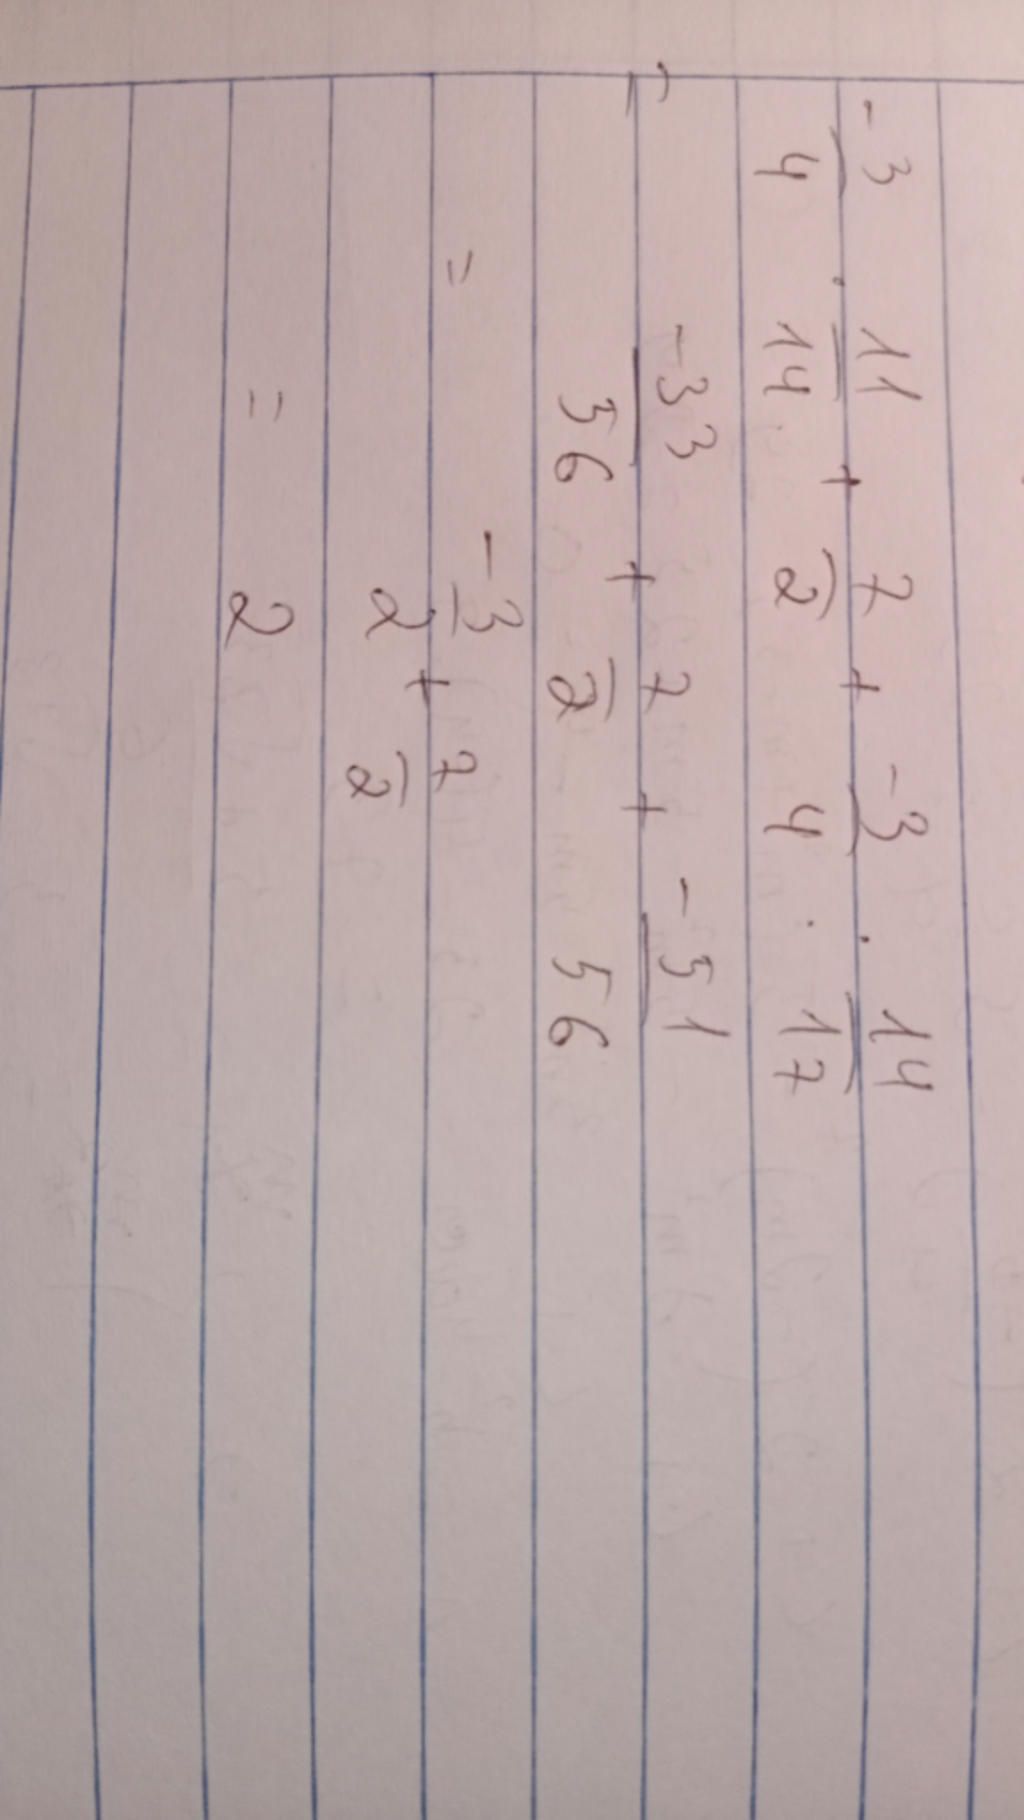 -3/4 · 11/14 + 7/2 + -3/4 · 14/17
= -33/56 + 7/2 + -51/56
= -3/2 + 7/2
= 2